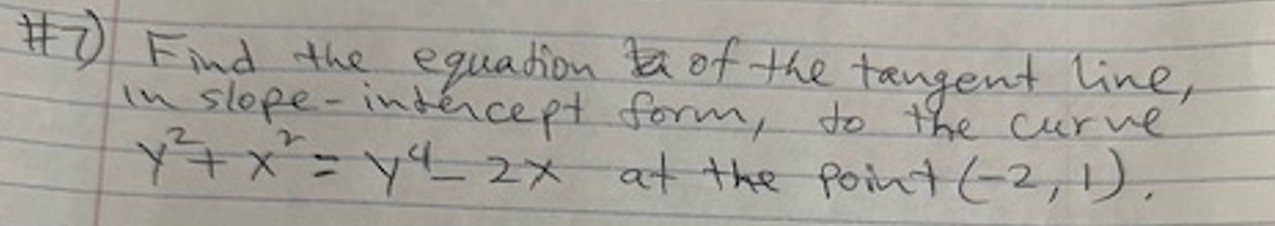 #7) Find the equation of the tangent line,
in slope-intercept form, to the curve
y²+x²=y⁴-2x at the point (-2,1).